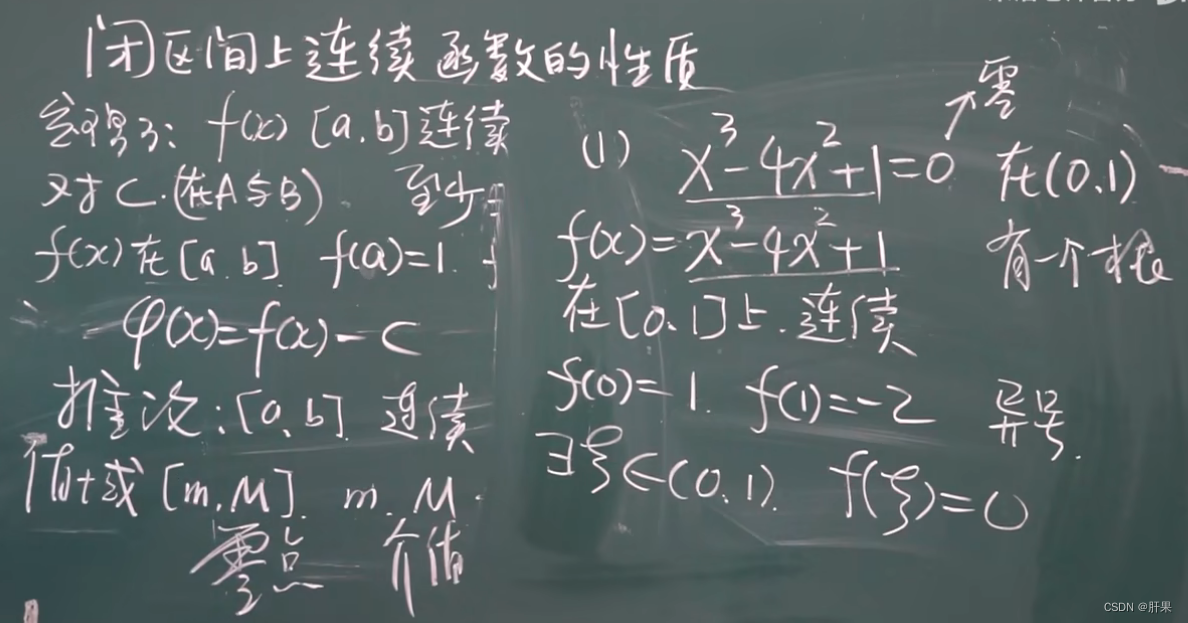 闭区间上连续函数的性质
f(x) [a,b]连续
对C.(在A与B) 至少
f(x)在[a,b] f(a)=1.
φ(x)=f(x)-C
推论:[a,b] 连续
值域[m,M] m,M.
零点 介值
零
(1) x³-4x²+1=0 在(0,1)
有一个根
f(x)=x³-4x²+1
在[0,1]上.连续
f(0)=1. f(1)=-2 异号.
∃ξ∈(0,1). f(ξ)=0
CSDN @肝果